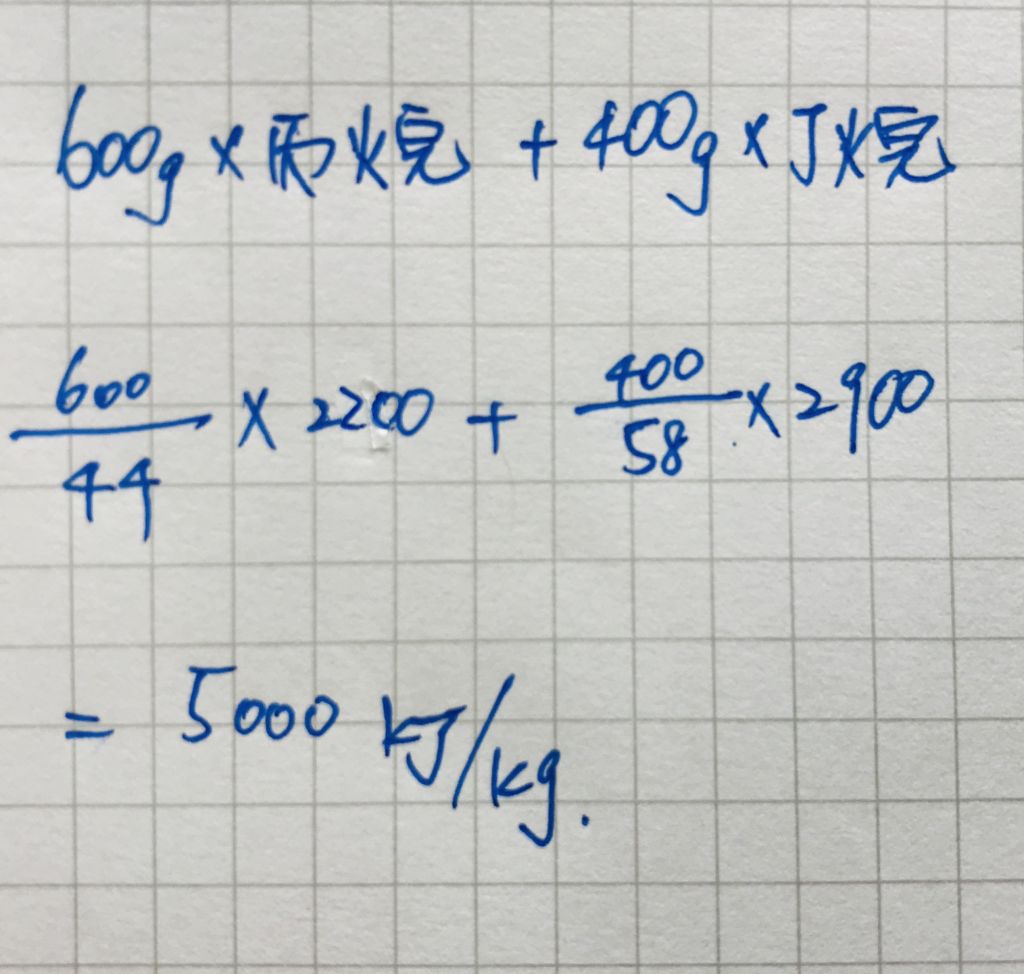 600g × 丙烷 + 400g × 丁烷
600/44 × 2200 + 400/58 × 2900
= 5000 kJ/kg.